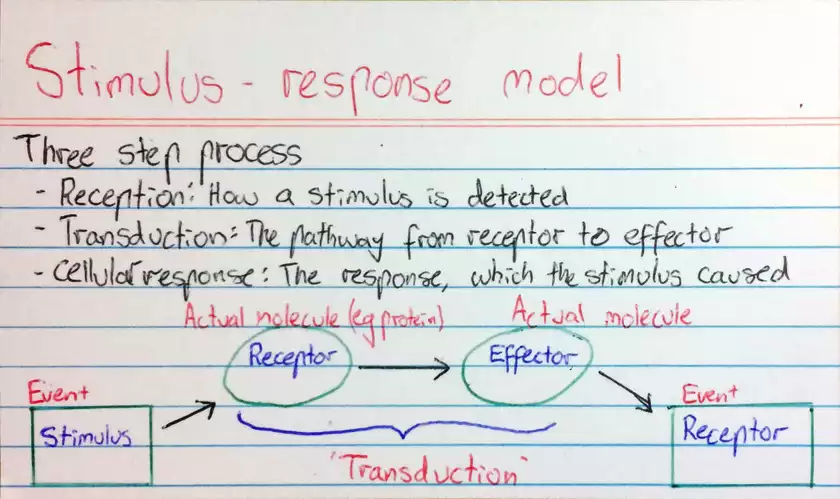 Stimulus - response model
Three step process
- Reception: How a stimulus is detected
- Transduction: The pathway from receptor to effector
- Cellular response: The response, which the stimulus caused
Actual molecule (eg protein) Actual molecule
Receptor Effector
Event Event
Stimulus Receptor
"Transduction"